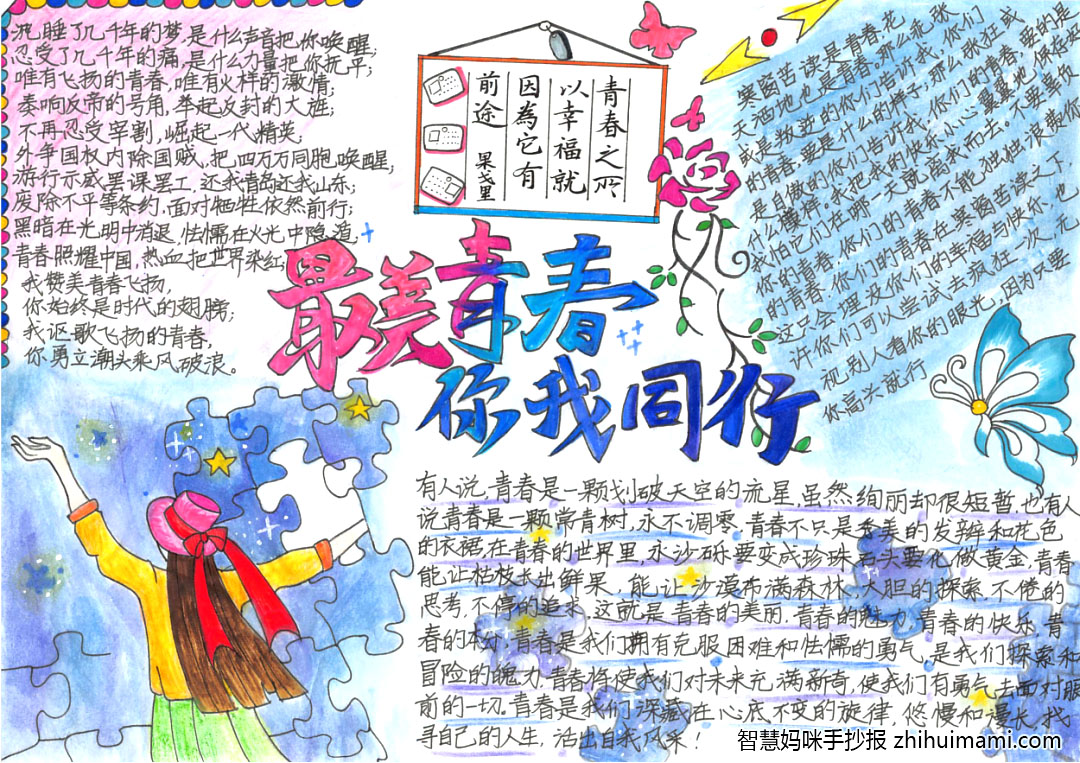 沉睡了几千年的梦,是什么声音把你唤醒;
忍受了几千年的痛,是什么力量把你抚平;
唯有飞扬的青春,唯有火样的激情;
奏响反帝的号角,举起反封的大旌;
不再忍受宰割,崛起一代精英
外争国权内除国贼,把四万万同胞唤醒;
游行示威罢课罢工,还我青岛还我山东;
废除不平等条约,面对牺牲依然前行;
黑暗在光明中消退,怯懦在火光中隐遁,
青春照耀中国,热血把世界染红;
我赞美青春飞扬,
你始终是时代的翅膀;
我讴歌飞扬的青春,
你勇立潮头乘风破浪。
青春之所
以幸福就
因為它有
前途 果戈里
最美青春
你我同行
寒窗苦读是青春,花
天酒地也是青春,那么花,张
或是叛逆的你们告诉我,你们
的青春要是什么的样子;那么张狂或
是自傲的你们告诉我,你们的青春,要的是
什么模样,我把我的快乐小心翼翼地保存好
我怕它们在哪一天就离我而去。不要辜负
你的青春,你们的青春不能独独浪费你
的青春,你们的青春在寒窗苦读之下,
这只会埋没你们的幸福与快乐,也
许你们可以尝试去疯狂一次,无
视别人看你的眼光,因为只要
你高头就行
有人说,青春是一颗划破天空的流星,虽然绚丽却很短暂,也有人
说青春是一颗常青树,永不凋零,青春不只是秀美的发辫和花色
的衣裙,在青春的世界里,永沙砾要变成珍珠,石头要化做黄金,青春
能让枯枝长出鲜果,能让沙漠布满森林,大胆的探索,不倦的
思考,不停的追求,这就是青春的美丽,青春的魅力,青春的快乐,青
春的本分,青春是我们拥有克服困难和怯懦的勇气,是我们探索和
冒险的魄力,青春将使我们对未来充满新奇,使我们有勇气去面对眼
前的一切,青春是我们深藏在心底不变的旋律,悠慢和漫长,找
寻自己的人生,活出自我风采!
智慧妈咪手抄报 zhihuimami.com